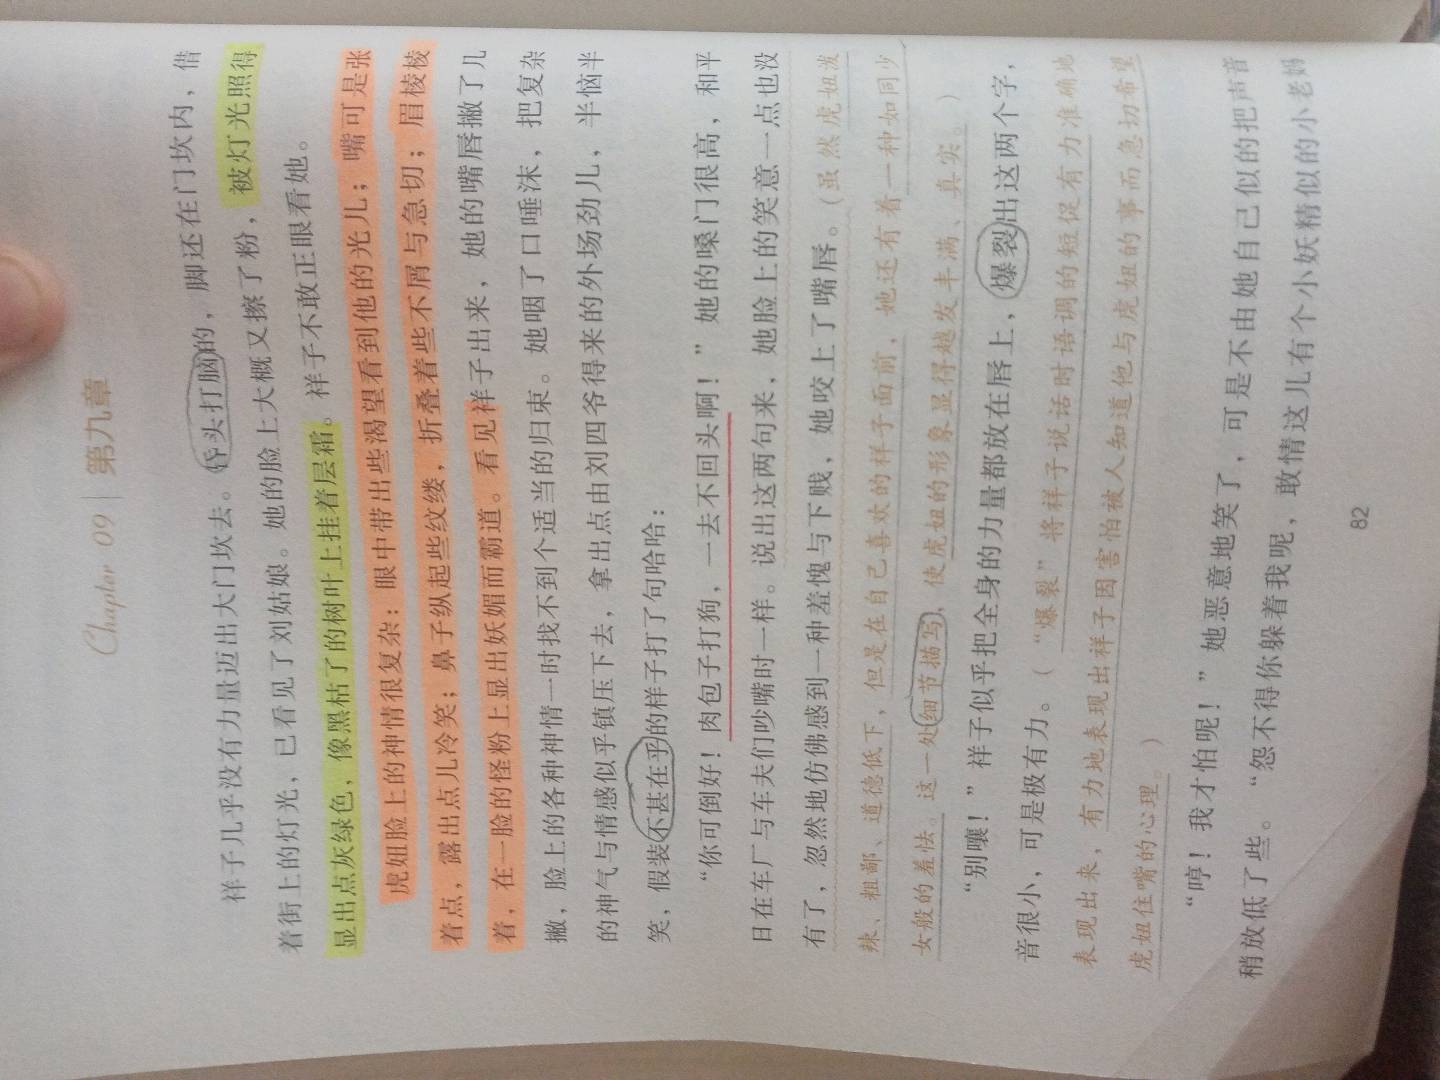 Chapter 09 | 第九章
祥子几乎没有力量迈出大门坎去。昏头打脑的，脚还在门坎内，借
着街上的灯光，已看见了刘姑娘。她的脸上大概又擦了粉，被灯光照得
显出点灰绿色，像黑枯了的树叶上挂着层霜。祥子不敢正眼看她。
虎妞脸上的神情很复杂：眼中带出些渴望看到他的光儿；嘴可是张
着点，露出点儿冷笑；鼻子纵起些纹缕，折叠着些不屑与急切；眉棱棱
着，在一脸的怪粉上显出妖媚而霸道。看见祥子出来，她的嘴唇撇了几
撇，脸上的各种神情一时找不到个适当的归束。她咽了口唾沫，把复杂
的神气与情感似乎镇压下去，拿出点由刘四爷得来的外场劲儿，半恼半
笑，假装不甚在乎的样子打了句哈哈：
“你可倒好！肉包子打狗，一去不回头啊！”她的嗓门很高，和平
日在车厂与车夫们吵嘴时一样。说出这两句来，她脸上的笑意一点也没
有了，忽然地仿佛感到一种羞愧与下贱，她咬上了嘴唇。（虽然虎妞泼
辣、粗鄙、道德低下，但是在自己喜欢的样子面前，她还有着一种如同少
女般的羞怯。这一处细节描写，使虎妞的形象显得越发丰满、真实。）
“别嚷！”祥子似乎把全身的力量都放在唇上，爆裂出这两个字，
音很小，可是极有力。（“爆裂”将祥子说话时语调的短促有力准确地
表现出来，有力地表现出祥子因害怕被人知道他与虎妞的事而急切希望
虎妞住嘴的心理。）
“哼！我才怕呢！”她恶意地笑了，可是不由她自己似的把声音
稍放低了些。“怨不得你躲着我呢，敢情这儿有个小妖精似的小老妈
82